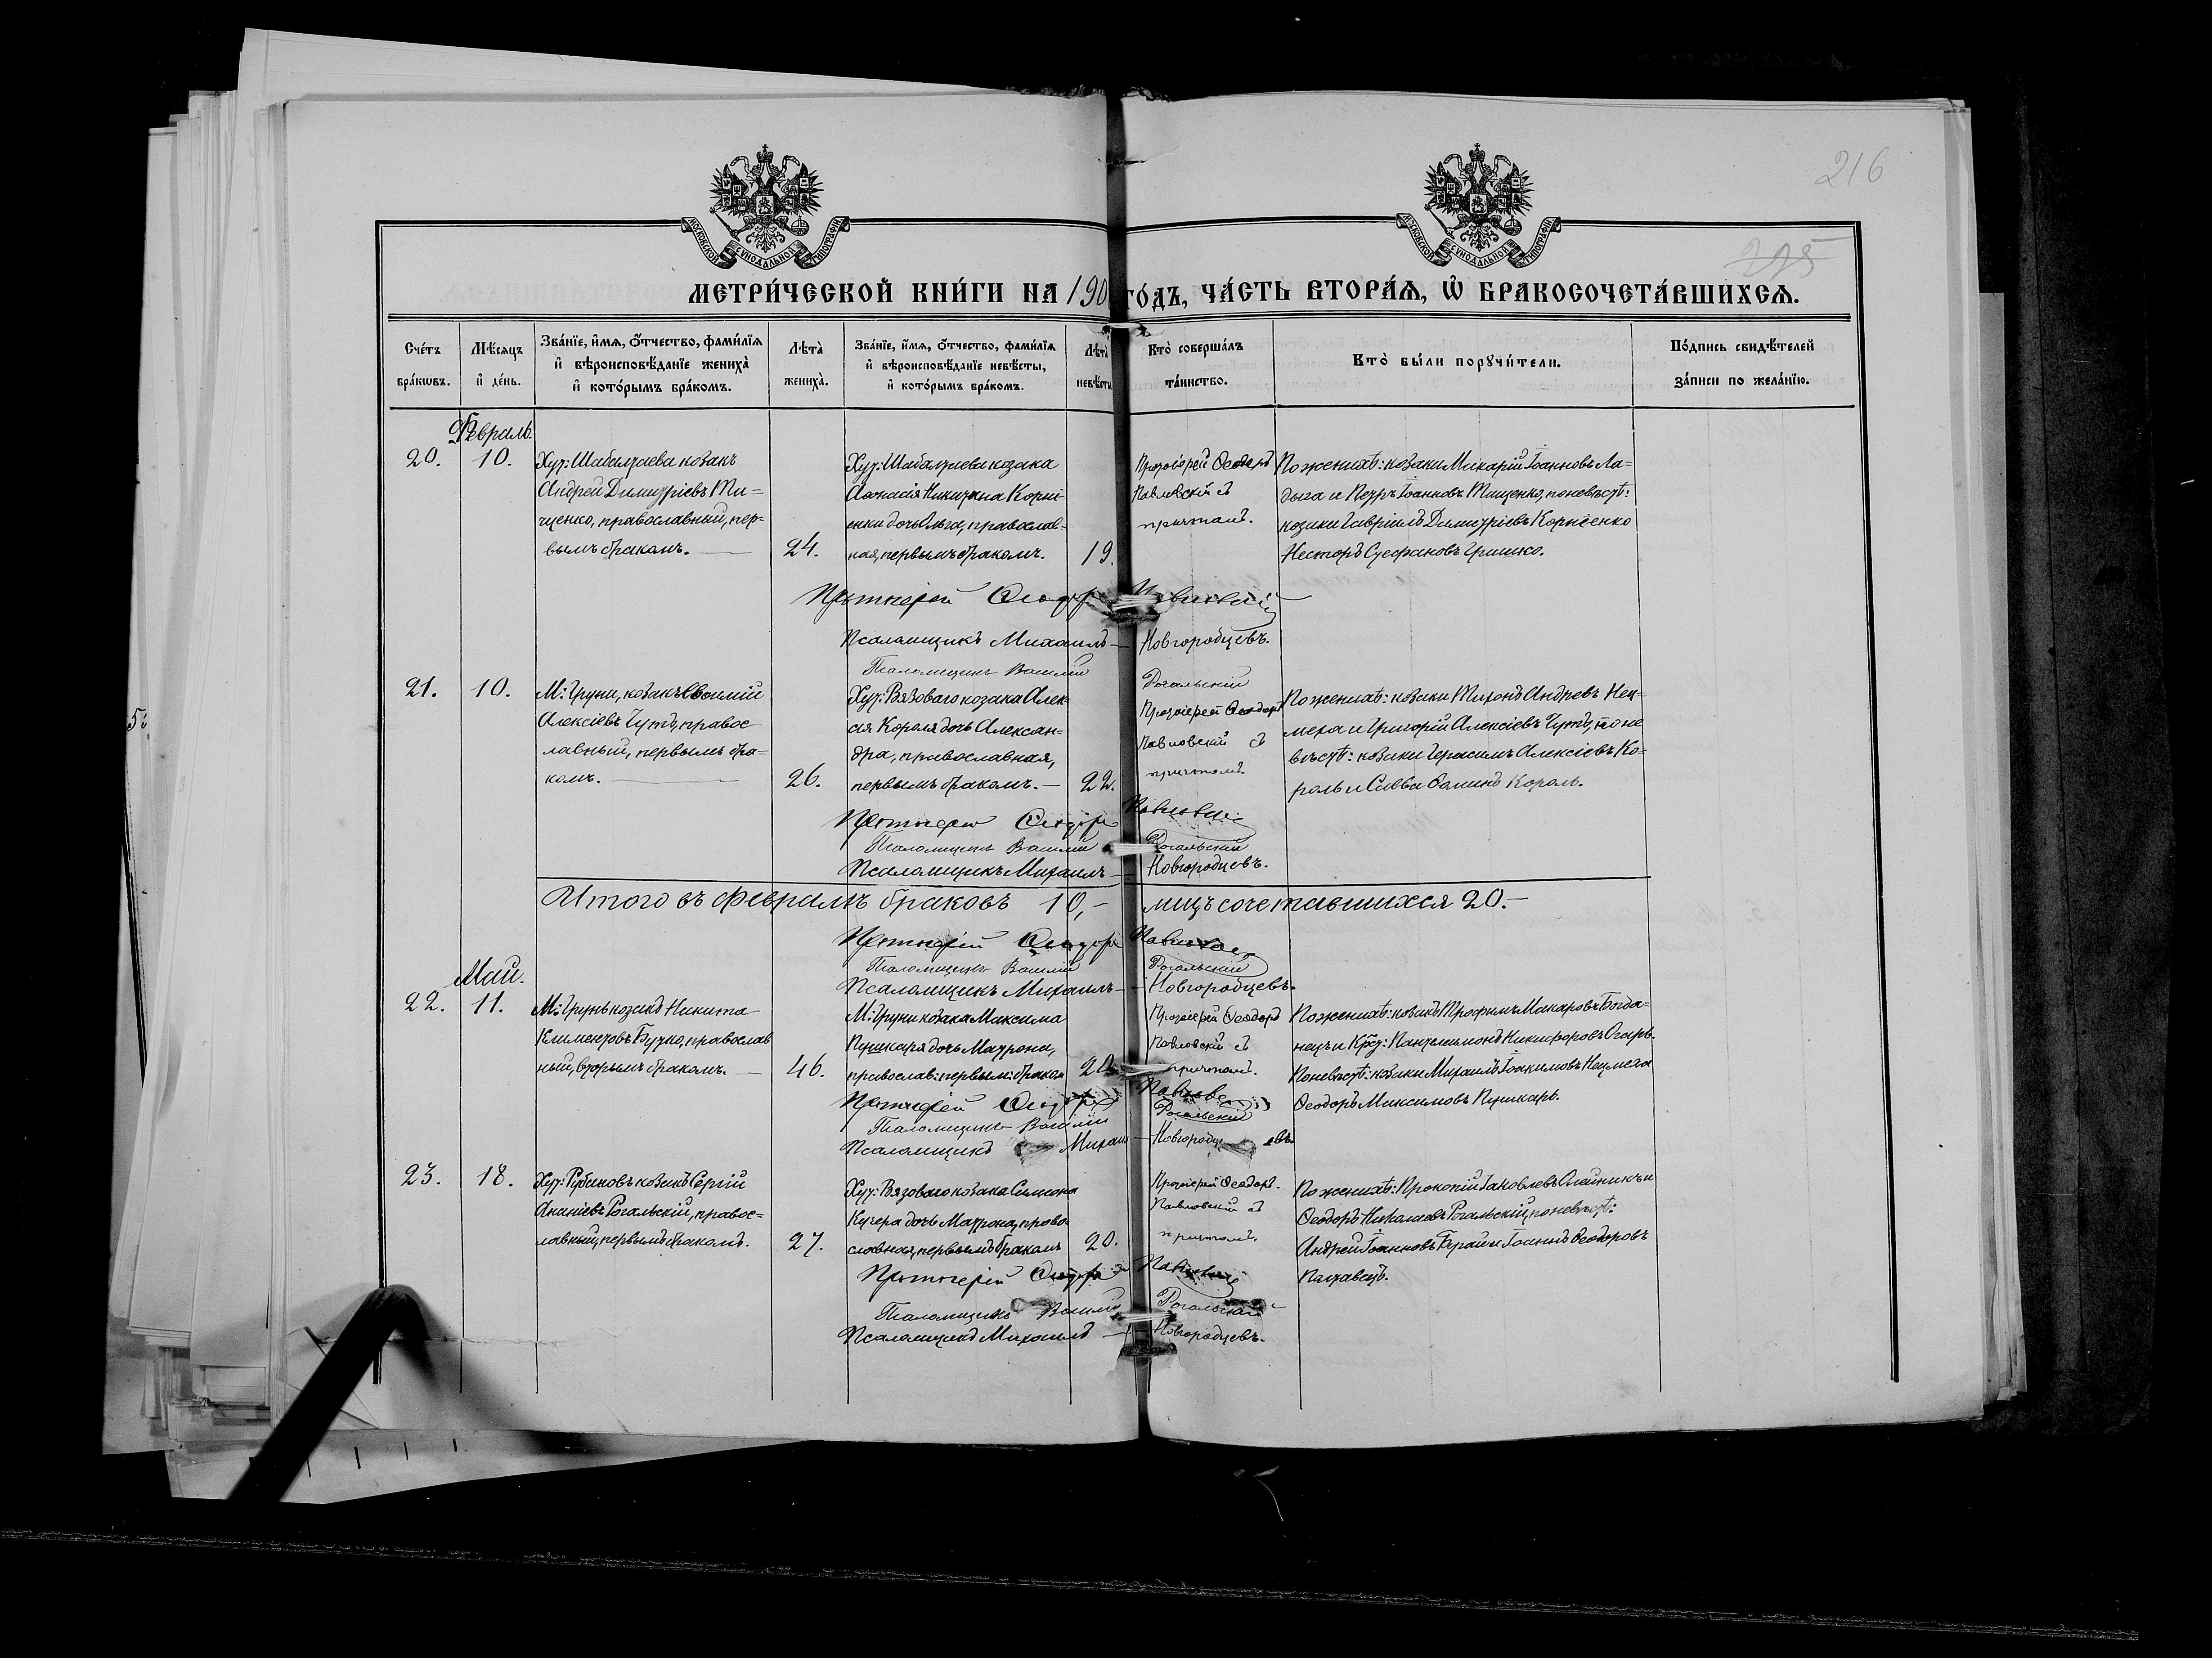 216
295
МОСКОВСКОЙ СУНОДАЛЬНОЙ ТИПОГРАФІИ
МОСКОВСКОЙ СУНОДАЛЬНОЙ ТИПОГРАФІИ
МЕТРИ́ЧЕСКОЙ КНИ́ГИ НА 190 ГО́ДЪ, ЧА́СТЬ ВТОРА́Я, Ѽ БРАКОСОЧЕТА́ВШИХСЯ.
Сче́тъ бра́кѡвъ.
Мѣ́сяцъ и҆ де́нь.
Зва́нїе, и҆́мя, ѻ҆́тчество, фами́лїя и҆ вѣроисповѣ́данїе жениха̀ и҆ кото́рымъ бра́комъ.
Лѣта̀ жениха̀.
Зва́нїе, и҆́мя, ѻ҆́тчество, фами́лїя и҆ вѣроисповѣ́данїе невѣ́сты, и҆ кото́рымъ бра́комъ.
Лѣта̀ невѣ́сты
Кто̀ соверша́лъ та́инство.
Кто̀ бы́ли порꙋчи́тели.
По́дпись свидѣ́телей за́писи по жела́нїю.
Февраль.
20.
10.
Хут: Шабалтаева козакъ
Андрей Димитріевъ Ти=
щенко, православный, пер=
вымъ бракомъ.
24.
Хут: Шабалтаева козака
Аѳанасія Никитина Корні
енки дочь Ольга, православ-
ная, первымъ бракомъ.
19.
Протоіерей Ѳеодоръ
Павловскій съ
причтомъ.
По женихѣ: козаки Макарій Іоанновъ Ла=
дыга и Петръ Іоанновъ Тищенко, по невѣстѣ:
козаки Гавріилъ Димитріевъ Корніенко
Несторъ Стефановъ Гришко.
Протоіерей Ѳеодоръ Павловскій
Псаломщикъ Михаилъ Новгородцевъ.
Псаломщикъ Василій Рогальскій
21.
10.
М: Груни, козакъ Евѳимій
Алексіевъ Гутъ, правос
лавный, первымъ бра=
комъ.
26.
Хут: Вязоваго козака Алек-
сія Короля дочь Алексан=
дра, православная,
первымъ бракомъ.
22.
Протоіерей Ѳеодоръ
Павловскій съ
причтомъ.
По женихѣ: козаки Тихонъ Андреевъ Неч-
меха и Григорій Алексіевъ Гутъ, по не
вѣстѣ: козаки Герасимъ Алексіевъ Ко-
роль и Савва Ѳоминъ Король.
Протоіерей Ѳеодоръ Павловскій
Псаломщикъ Василій Рогальскій
Псаломщикъ Михаилъ Новгородцевъ.
Итого въ февралѣ браковъ 10,- лицъ сочетавшихся 20.-
Протоіерей Ѳеодоръ Павловскій
Псаломщикъ Василій Рогальскій
Псаломщикъ Михаилъ Новгородцевъ.
Май.
22.
11.
М: Грунь козакъ Никита
Климентовъ Бутко, православ
ный, вторымъ бракомъ.
46.
М: Груни козака Максима
Пушкаря дочь Матрона,
православ: первым: браком
20
Протоіерей Ѳеодоръ
Павловскій съ
причтомъ.
По женихѣ: козакъ Трофимъ Макаровъ Богда=
нецъ и Пантелимонъ Никифоровъ Огарь.
По невѣстѣ: козаки Михаилъ Іоакимовъ Нечмеха
Ѳеодоръ Максимовъ Пушкарь.
Протоіерей Ѳеодоръ Павловскій
Псаломщикъ Василій Рогальскій
Псаломщикъ Михаилъ Новгородцевъ.
23.
18.
Хут: Рубановъ козакъ Сергій
Ананіевъ Рогальскій, правос=
лавный, первымъ бракомъ.
27.
Хут: Вязоваго козака Симеона
Кучера дочь Матрона, право
славная, первымъ браком
20.
Протоіерей Ѳеодоръ
Павловскій съ
причтомъ.
По женихѣ: Прокопій Іаковлевъ Олейникъ и
Ѳеодоръ Николаевъ Рогальскій, по невѣстѣ:
Андрей Іоанновъ Бграй и Іоаннъ Ѳеодоровъ
Протоіерей Ѳеодоръ Павловскій
Псаломщикъ Василій Рогальскій
Псаломщикъ Михаилъ Новгородцевъ.